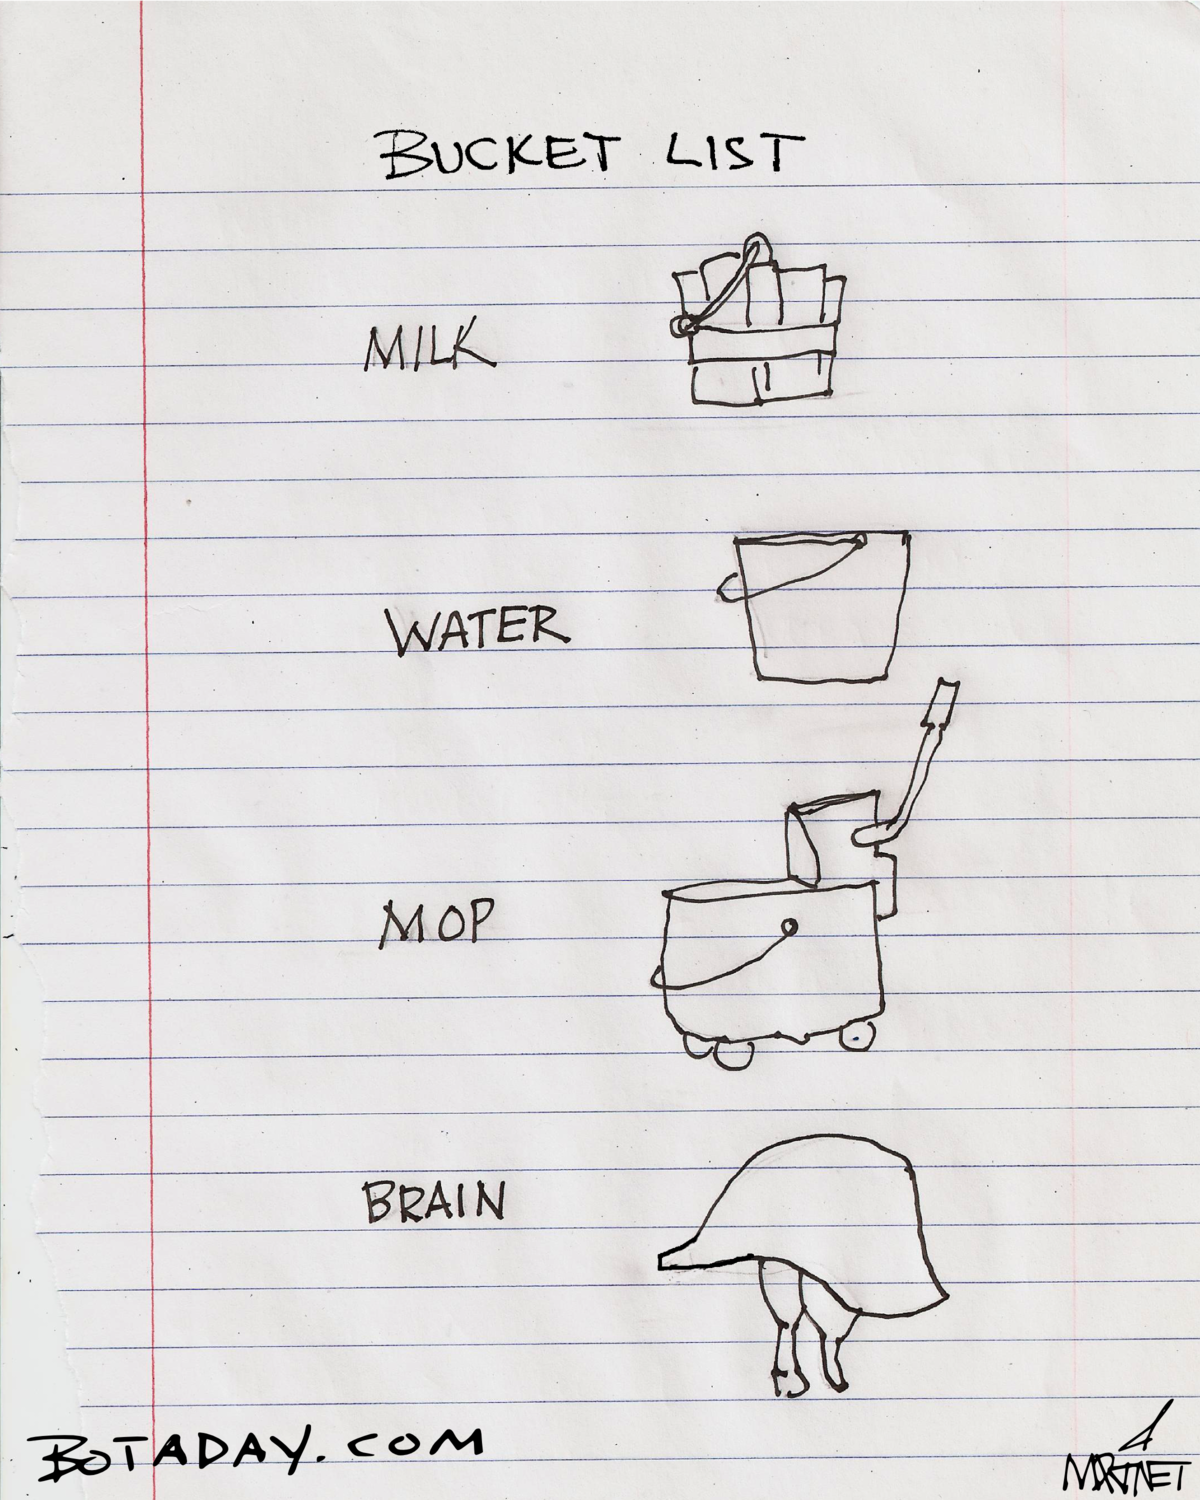 BUCKET LIST
MILK
WATER
MOP
BRAIN
BOTADAY.COM
MARTNET